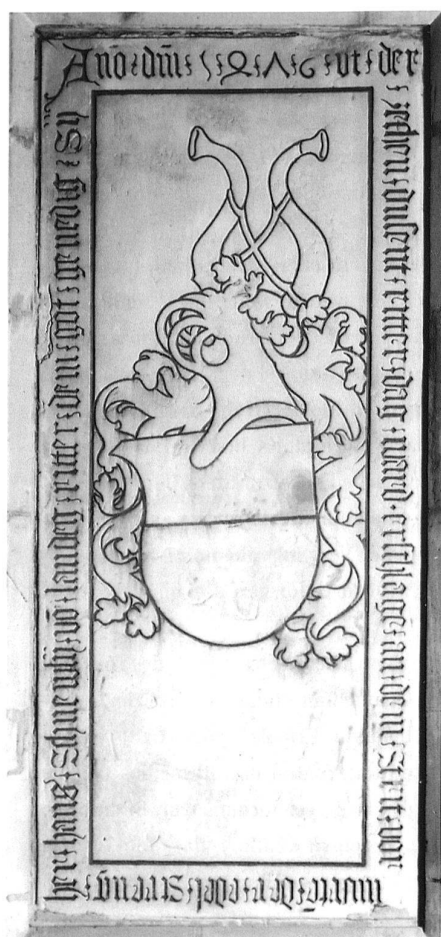 Anō : dm̄ : 1 : 4 : 7 : 6 : vf : der :
zechen : dusent : ritter : dag : ward · erschlage : an : dem : Strit : von
murtē : der : edel : streng :
her : hans : Schnewlÿ : vō : landeg : ritter : dem : got : genedig : Sy